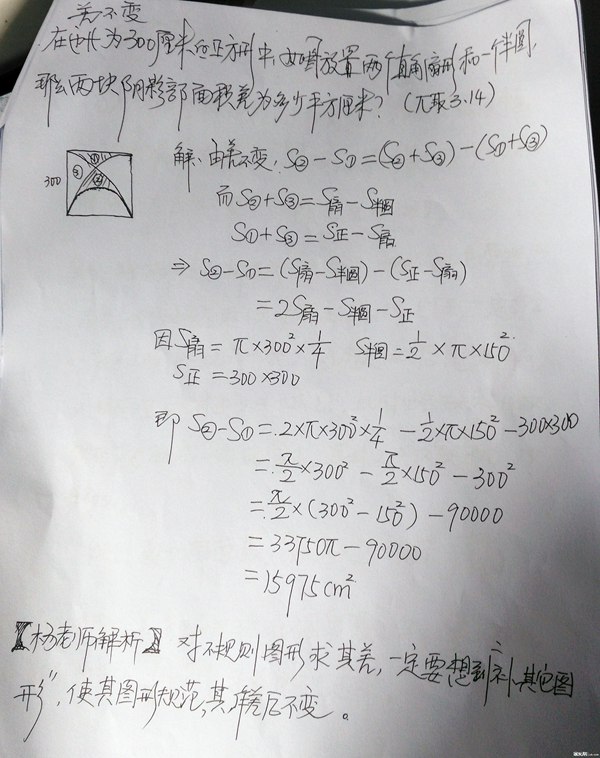 差不变
在边长为300厘米的正方形中,如图放置两个直角扇形和一个半圆,
那么两块阴影部面积差为多少平方厘米?(π取3.14)
解:由差不变:S②-S①=(S②+S③)-(S①+S③)
而S②+S③=S扇-S半圆
S①+S③=S正-S扇
⇒ S②-S①=(S扇-S半圆)-(S正-S扇)
=2S扇-S半圆-S正
因S扇=π×300²×1/4 S半圆=1/2×π×150²
S正=300×300
即S②-S①=2×π×300²×1/4-1/2×π×150²-300×300
=π/2×300²-π/2×150²-300²
=π/2×(300²-150²)-90000
=33750π-90000
=15975cm²
【杨老师解析】对不规则图形求其差,一定要想到"补其它图
形",使其图形规范,其差不变。
300
①
③
②